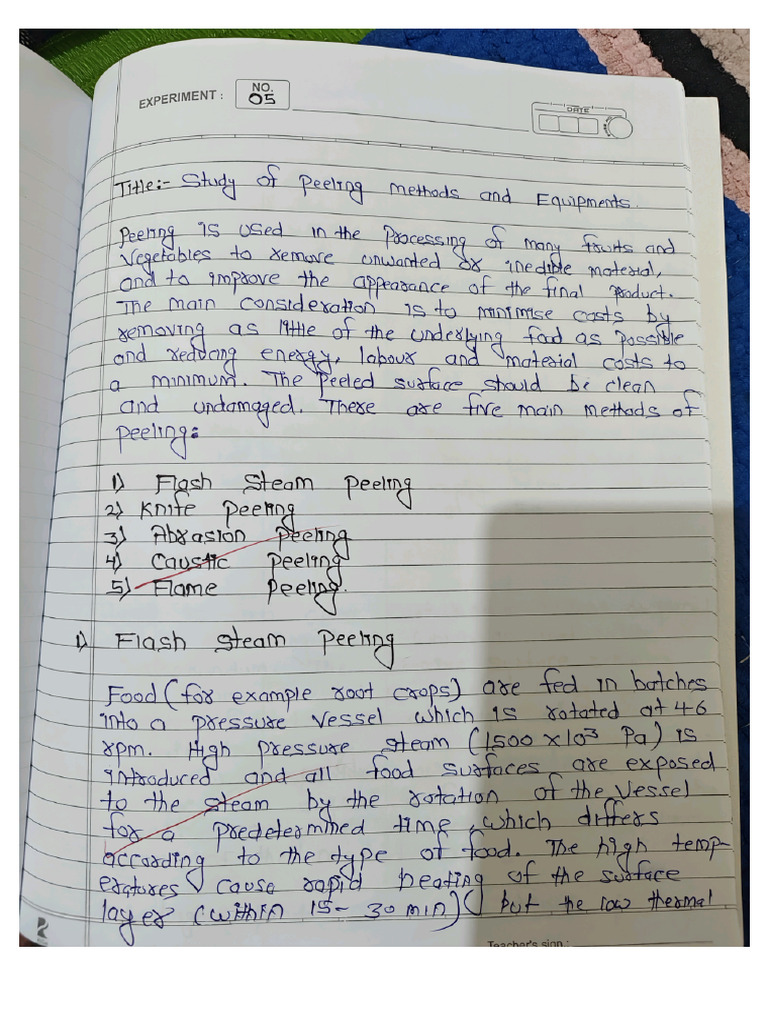 EXPERIMENT : NO. 05
DATE
Title:- Study of Peeling Methods and Equipments.
Peeling is used in the Processing of many fruits and
Vegetables to remove unwanted or inedible material,
and to improve the appearance of the final product.
The main consideration is to minimise costs by
removing as little of the underlying food as possible
and reducing energy, labour and material costs to
a minimum. The peeled surface should be clean
and undamaged. There are five main methods of
peeling:
1) Flash Steam Peeling
2) Knife Peeling
3) Abrasion Peeling
4) Caustic Peeling
5) Flame Peeling.
1) Flash Steam Peeling
Food (for example root crops) are fed in batches
into a pressure vessel which is rotated at 46
rpm. High pressure steam (1500 x 10³ Pa) is
introduced and all food surfaces are exposed
to the steam by the rotation of the vessel
for a predetermined time, which differs
according to the type of food. The high temp-
eratures cause rapid heating of the surface
layer (within 15- 30 min) but the low thermal
Teacher's sign :